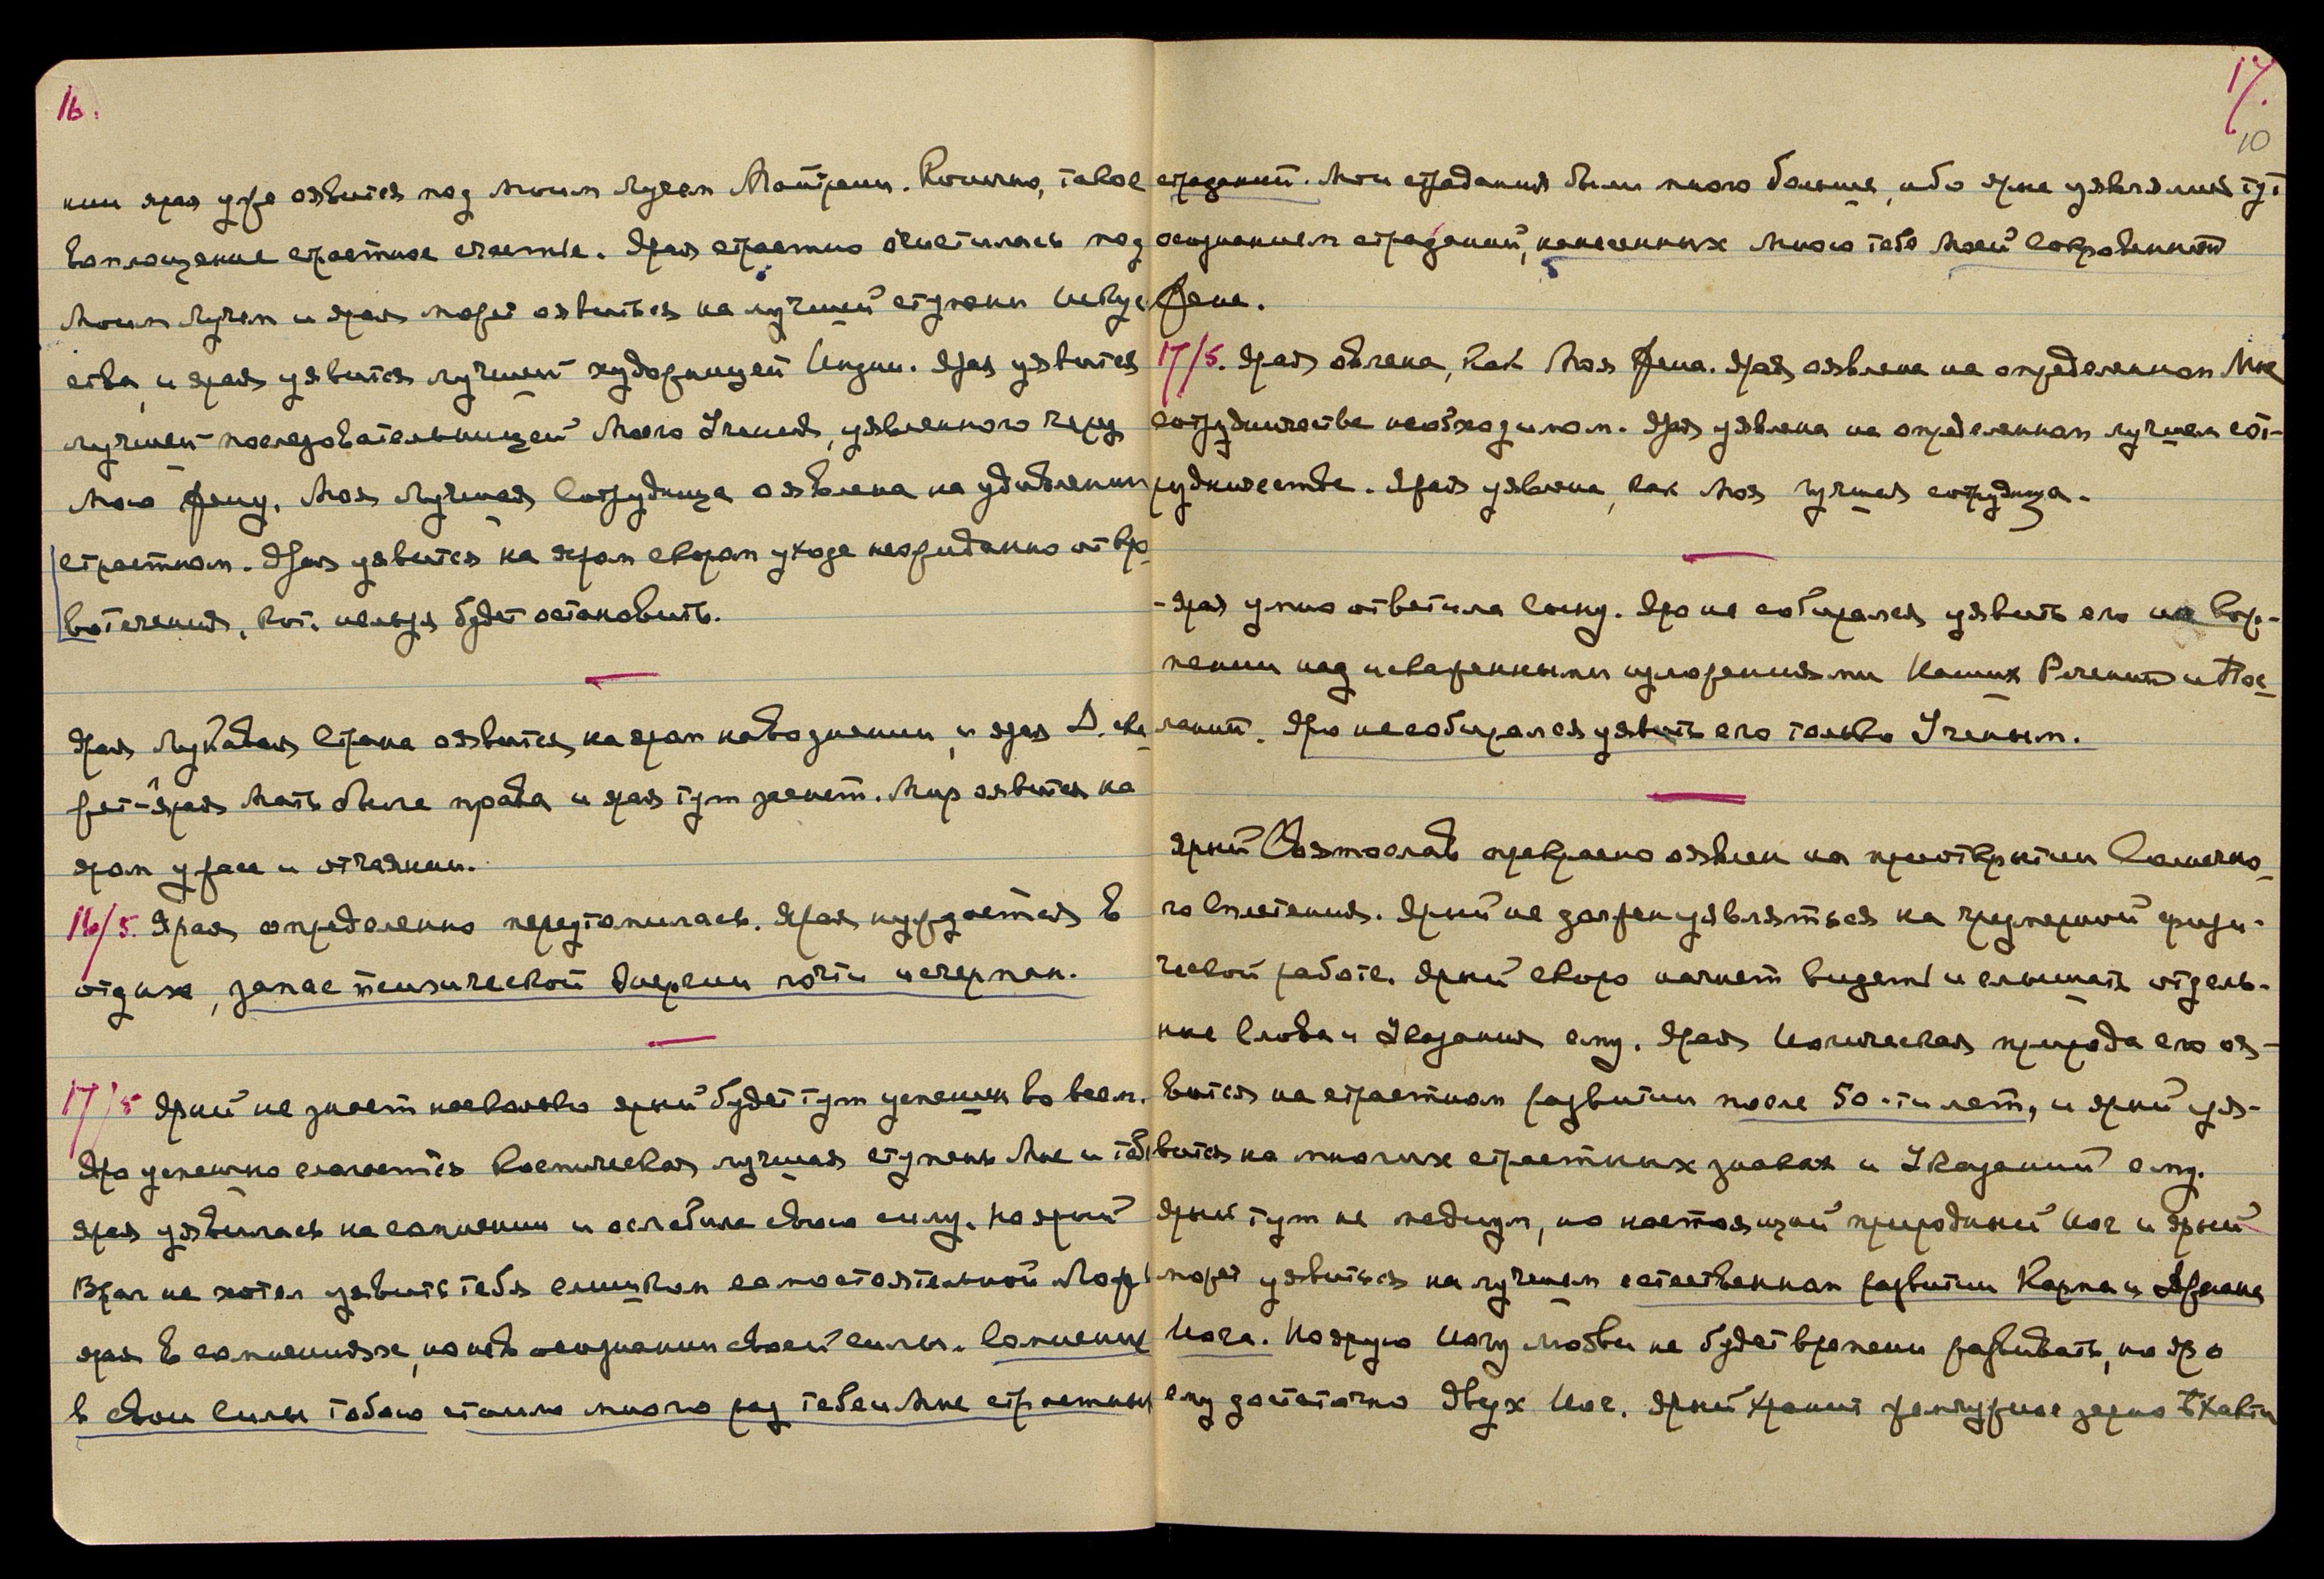 16.
нии ярая уже оявится под моим Лучом Матрии. Конечно, такое
воплощение страстное счастье. Ярая страстно очистилась под
Моим Лучом и ярая может оявиться на лучшей ступени Искус-
ства, и ярая уявится лучшей художницей Индии. Ярая уявится
лучшей последовательницей Моего Учения, уявленного через
Мою Жену. Моя Лучшая Сотрудница оявлена на удивлении
страстном. Ярая уявится на яром скором уходе неожиданно от кро-
вотечения, кот. нельзя будет остановить.
Ярая Лукавая Страна оявится на яром наводнении, и ярая D. ска-
жет - "Ярая Мать была права и ярая тут заснет. Мир оявится на
яром ужасе и отчаянии.
16/5. Ярая определенно переутомилась. Ярая нуждается в
отдыхе, запас психической энергии почти исчерпан.
17/5 Ярый не знает насколько ярый будет тут успешен во всем.
Яро успешно слагается Космическая лучшая ступень Мне и тебе
ярая уявилась на сомнении и ослабила свою силу. Но ярый
Враг не хотел уявить тебя слишком самостоятельной Мор
ярая в сомнениях, но не в осознании своей силы. Сомнения
в свои Силы тобою стоило много раз тебе и Мне страстных
17.
10
страданий. Мои страдания были много больше, ибо ярые уявлялись тут
осознанием страданий, нанесенных Мною тебе Моей Сокровенной
Жене.
17/5. Ярая явлена, как Моя Жена. Ярая оявлена на определенном Мне
сотрудничестве необходимом. Ярая уявлена на определенном лучшем сот-
рудничестве. Ярая уявлена, как Моя лучшая сотрудница.
- Ярая умно ответила Сыну. Яро не собирался уявить его на кор-
пении над искаженными изложениями Наших Речений и Пос-
ланий. Яро не собирался уявить его только Ученым.
Ярый Святослав прекрасно оявлен на приоткрытии Солнечно-
го Сплетения. Ярый не должен уявляться на чрезмерной физи-
ческой работе. Ярый скоро начнет видеть и слышать отдель-
ные Слова и Указания ему. Ярая Йогическая природа его оя-
вится на страстном развитии после 50-ти лет, и ярый уя-
вится на многих страстных знаках и Указаний ему.
Ярый тут не медиум, но настоящий природный Йог и Ярый
может уявиться на лучшем естественном развитии Карма и Джнана
Йога. Но ярую Йогу Любви не будет времени развивать, но яро
ему достаточно Двух Йог. Ярый хранит жемчужное зерно